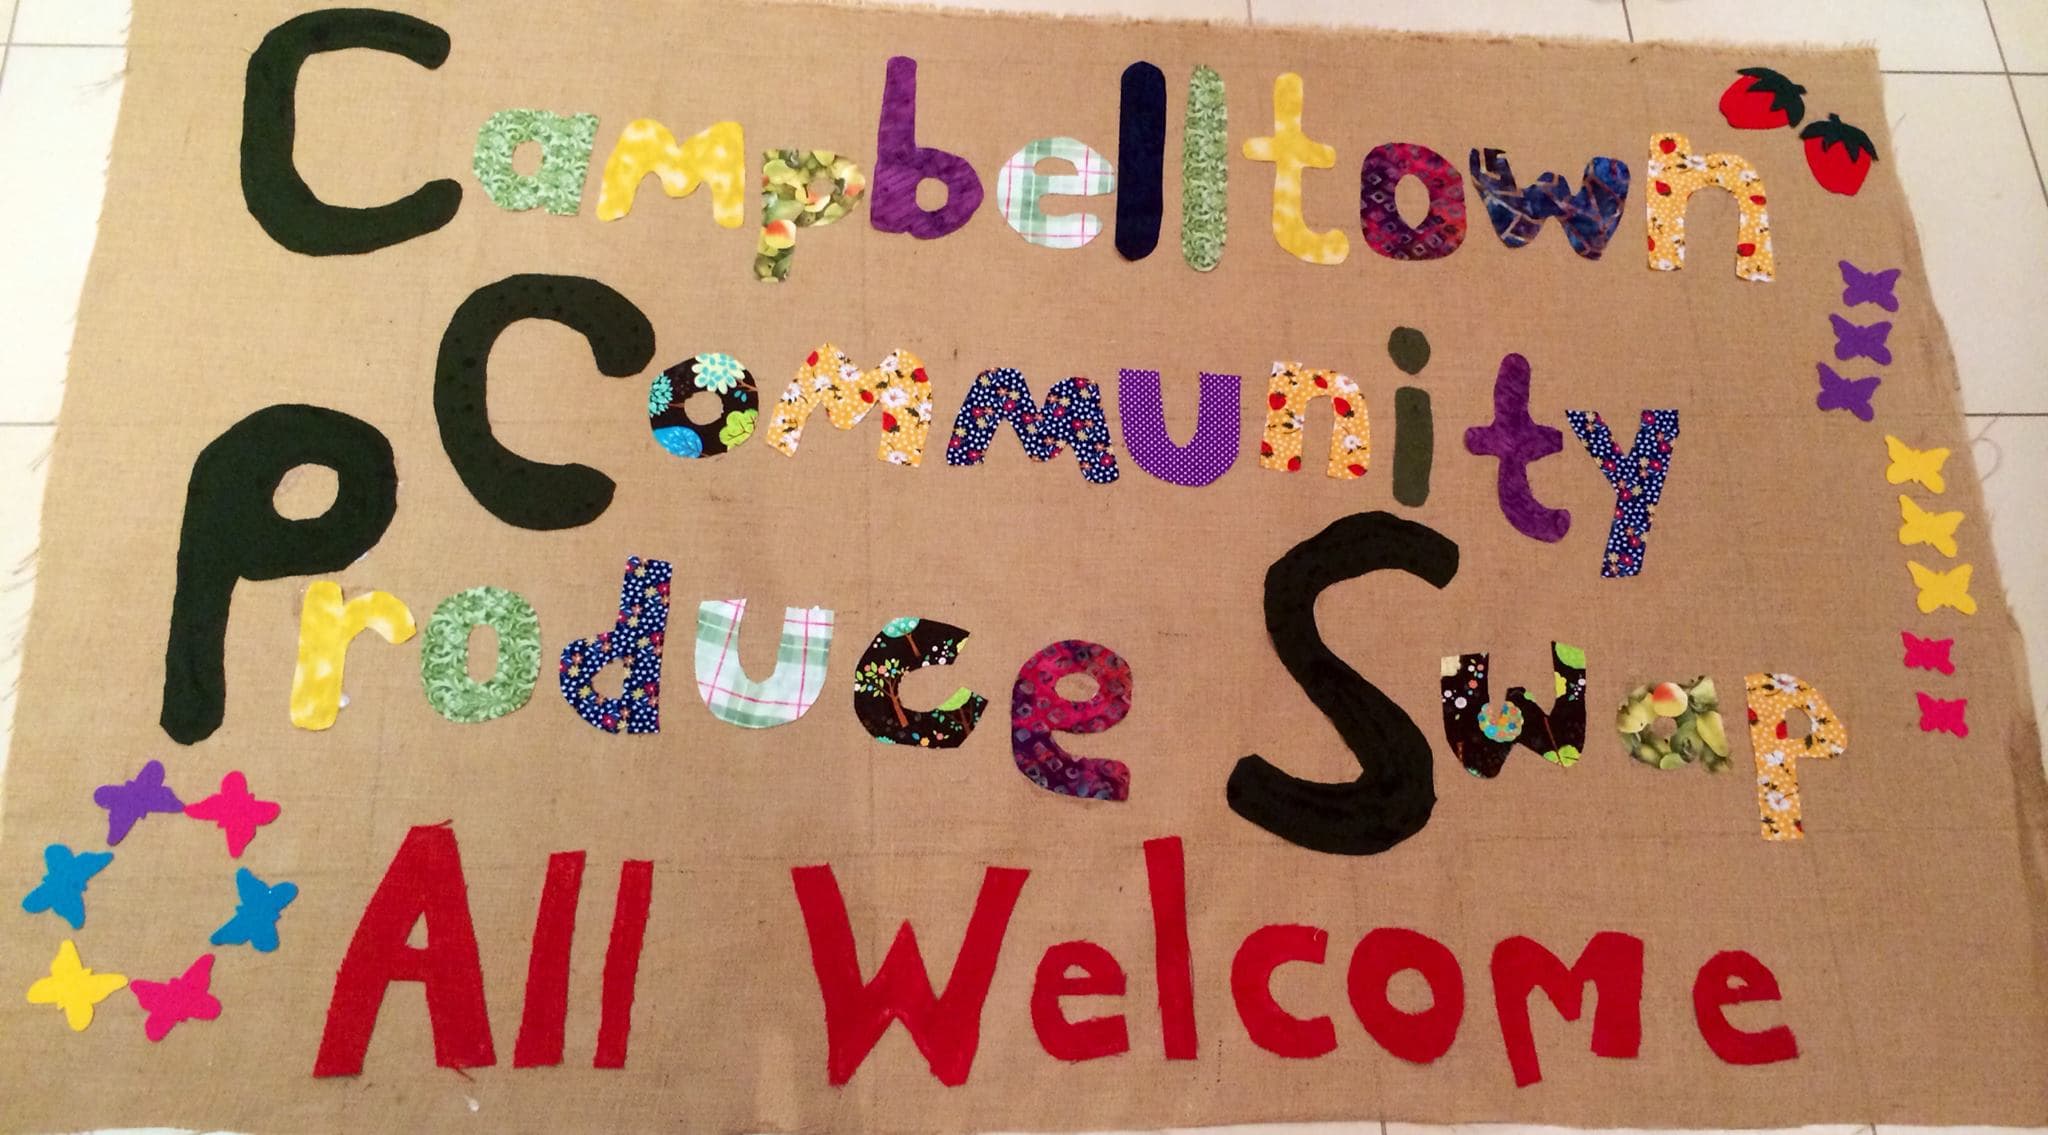 Campbelltown
Community
Produce Swap
All Welcome